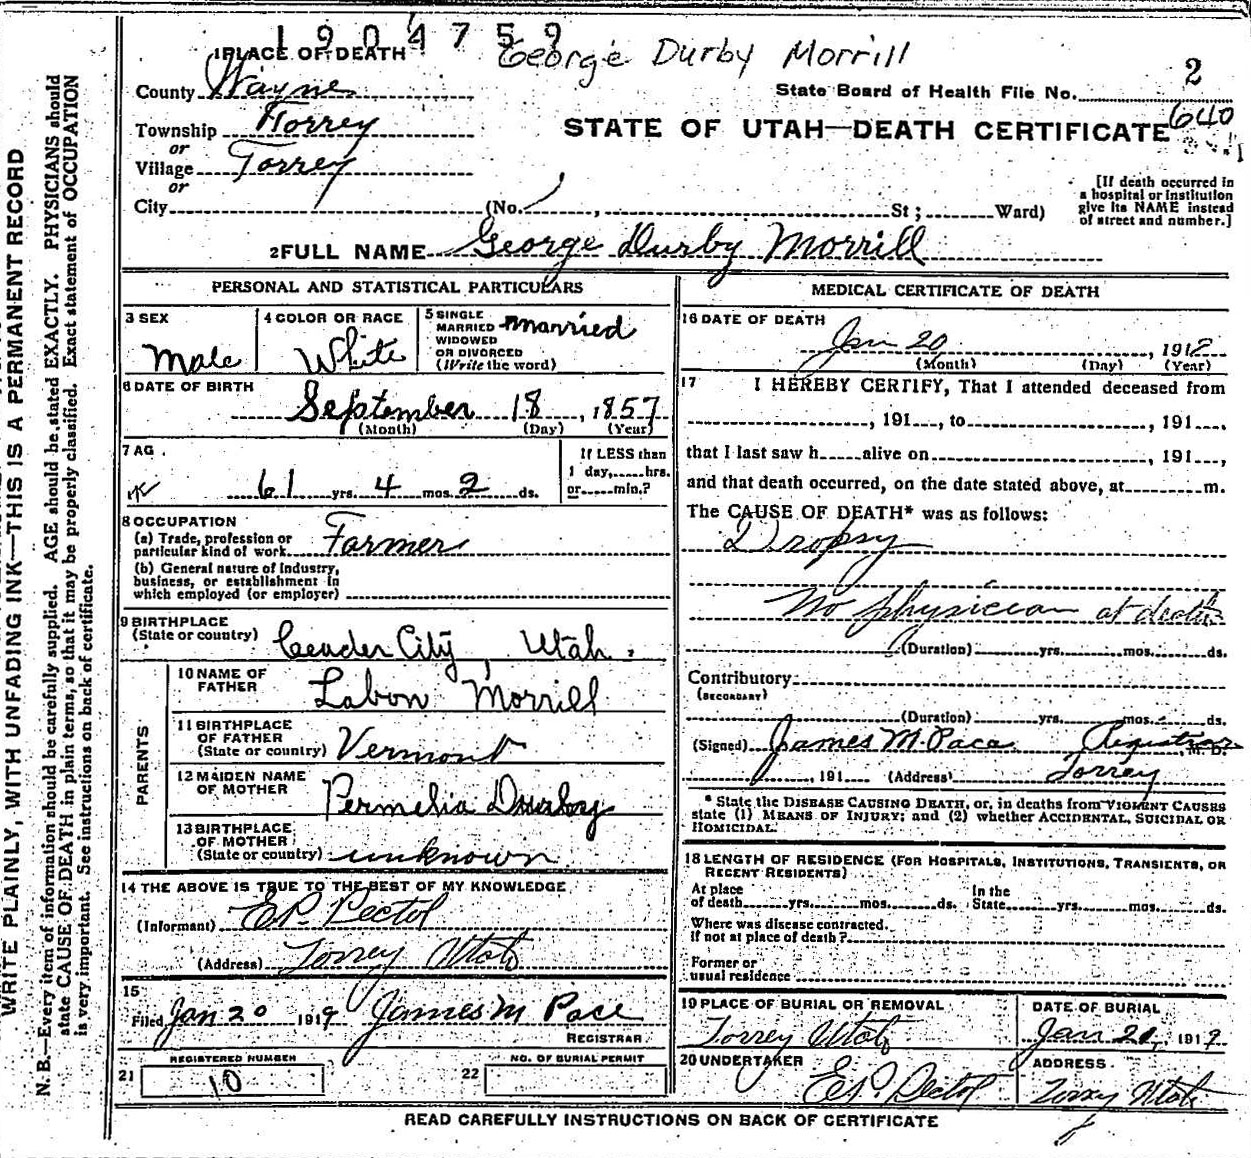 1904759
George Durby Morrill
1 PLACE OF DEATH
County Wayne
State Board of Health File No. 2
Township Torrey
STATE OF UTAH—DEATH CERTIFICATE 640
or
Village Torrey
or
City (No. , St; Ward)
[If death occurred in
a hospital or institution
give its NAME instead
of street and number.]
2 FULL NAME George Durby Morrill
PERSONAL AND STATISTICAL PARTICULARS
3 SEX
Male
4 COLOR OR RACE
White
5 SINGLE
MARRIED
WIDOWED
OR DIVORCED
(Write the word)
Married
6 DATE OF BIRTH
September 18, 1857
(Month) (Day) (Year)
7 AG
61 yrs. 4 mos. 2 ds.
If LESS than
1 day, hrs.
or min.?
8 OCCUPATION
(a) Trade, profession or
particular kind of work Farmer
(b) General nature of industry,
business, or establishment in
which employed (or employer)
9 BIRTHPLACE
(State or country) Ceader City, Utah.
PARENTS
10 NAME OF
FATHER Labon Morrill
11 BIRTHPLACE
OF FATHER
(State or country) Vermont
12 MAIDEN NAME
OF MOTHER Permelia Durby
13 BIRTHPLACE
OF MOTHER
(State or country) unknown
14 THE ABOVE IS TRUE TO THE BEST OF MY KNOWLEDGE
(Informant) E.P. Pectol
(Address) Torrey Utah
15
Filed Jan 20 1919 James M Pace
REGISTRAR
REGISTERED NUMBER
21 10
NO. OF BURIAL PERMIT
22
MEDICAL CERTIFICATE OF DEATH
16 DATE OF DEATH
Jan 20, 191
(Month) (Day) (Year)
17 I HEREBY CERTIFY, That I attended deceased from
, 191 , to , 191 .
that I last saw h alive on , 191 ,
and that death occurred, on the date stated above, at m.
The CAUSE OF DEATH* was as follows:
Dropsy
No physician at death
(Duration) yrs. mos. ds.
Contributory
(SECONDARY)
(Duration) yrs. mos. ds.
(Signed) James M. Pace Registrar M. D.
, 191 (Address) Torrey
* State the DISEASE CAUSING DEATH, or, in deaths from VIOLENT CAUSES
state (1) MEANS OF INJURY; and (2) whether ACCIDENTAL, SUICIDAL OR
HOMICIDAL.
18 LENGTH OF RESIDENCE (FOR HOSPITALS, INSTITUTIONS, TRANSIENTS, OR
RECENT RESIDENTS)
At place
of death yrs. mos. ds.
In the
State yrs. mos. ds.
Where was disease contracted.
If not at place of death?
Former or
usual residence
19 PLACE OF BURIAL OR REMOVAL
Torrey Utah
DATE OF BURIAL
Jan 21, 1919
20 UNDERTAKER
E.P. Pectol
ADDRESS
Torrey Utah
READ CAREFULLY INSTRUCTIONS ON BACK OF CERTIFICATE
WRITE PLAINLY, WITH UNFADING INK—THIS IS A PERMANENT RECORD
N. B.—Every item of information should be carefully supplied. AGE should be stated EXACTLY. PHYSICIANS should
state CAUSE OF DEATH in plain terms, so that it may be properly classified. Exact statement of OCCUPATION
is very important. See instructions on back of certificate.